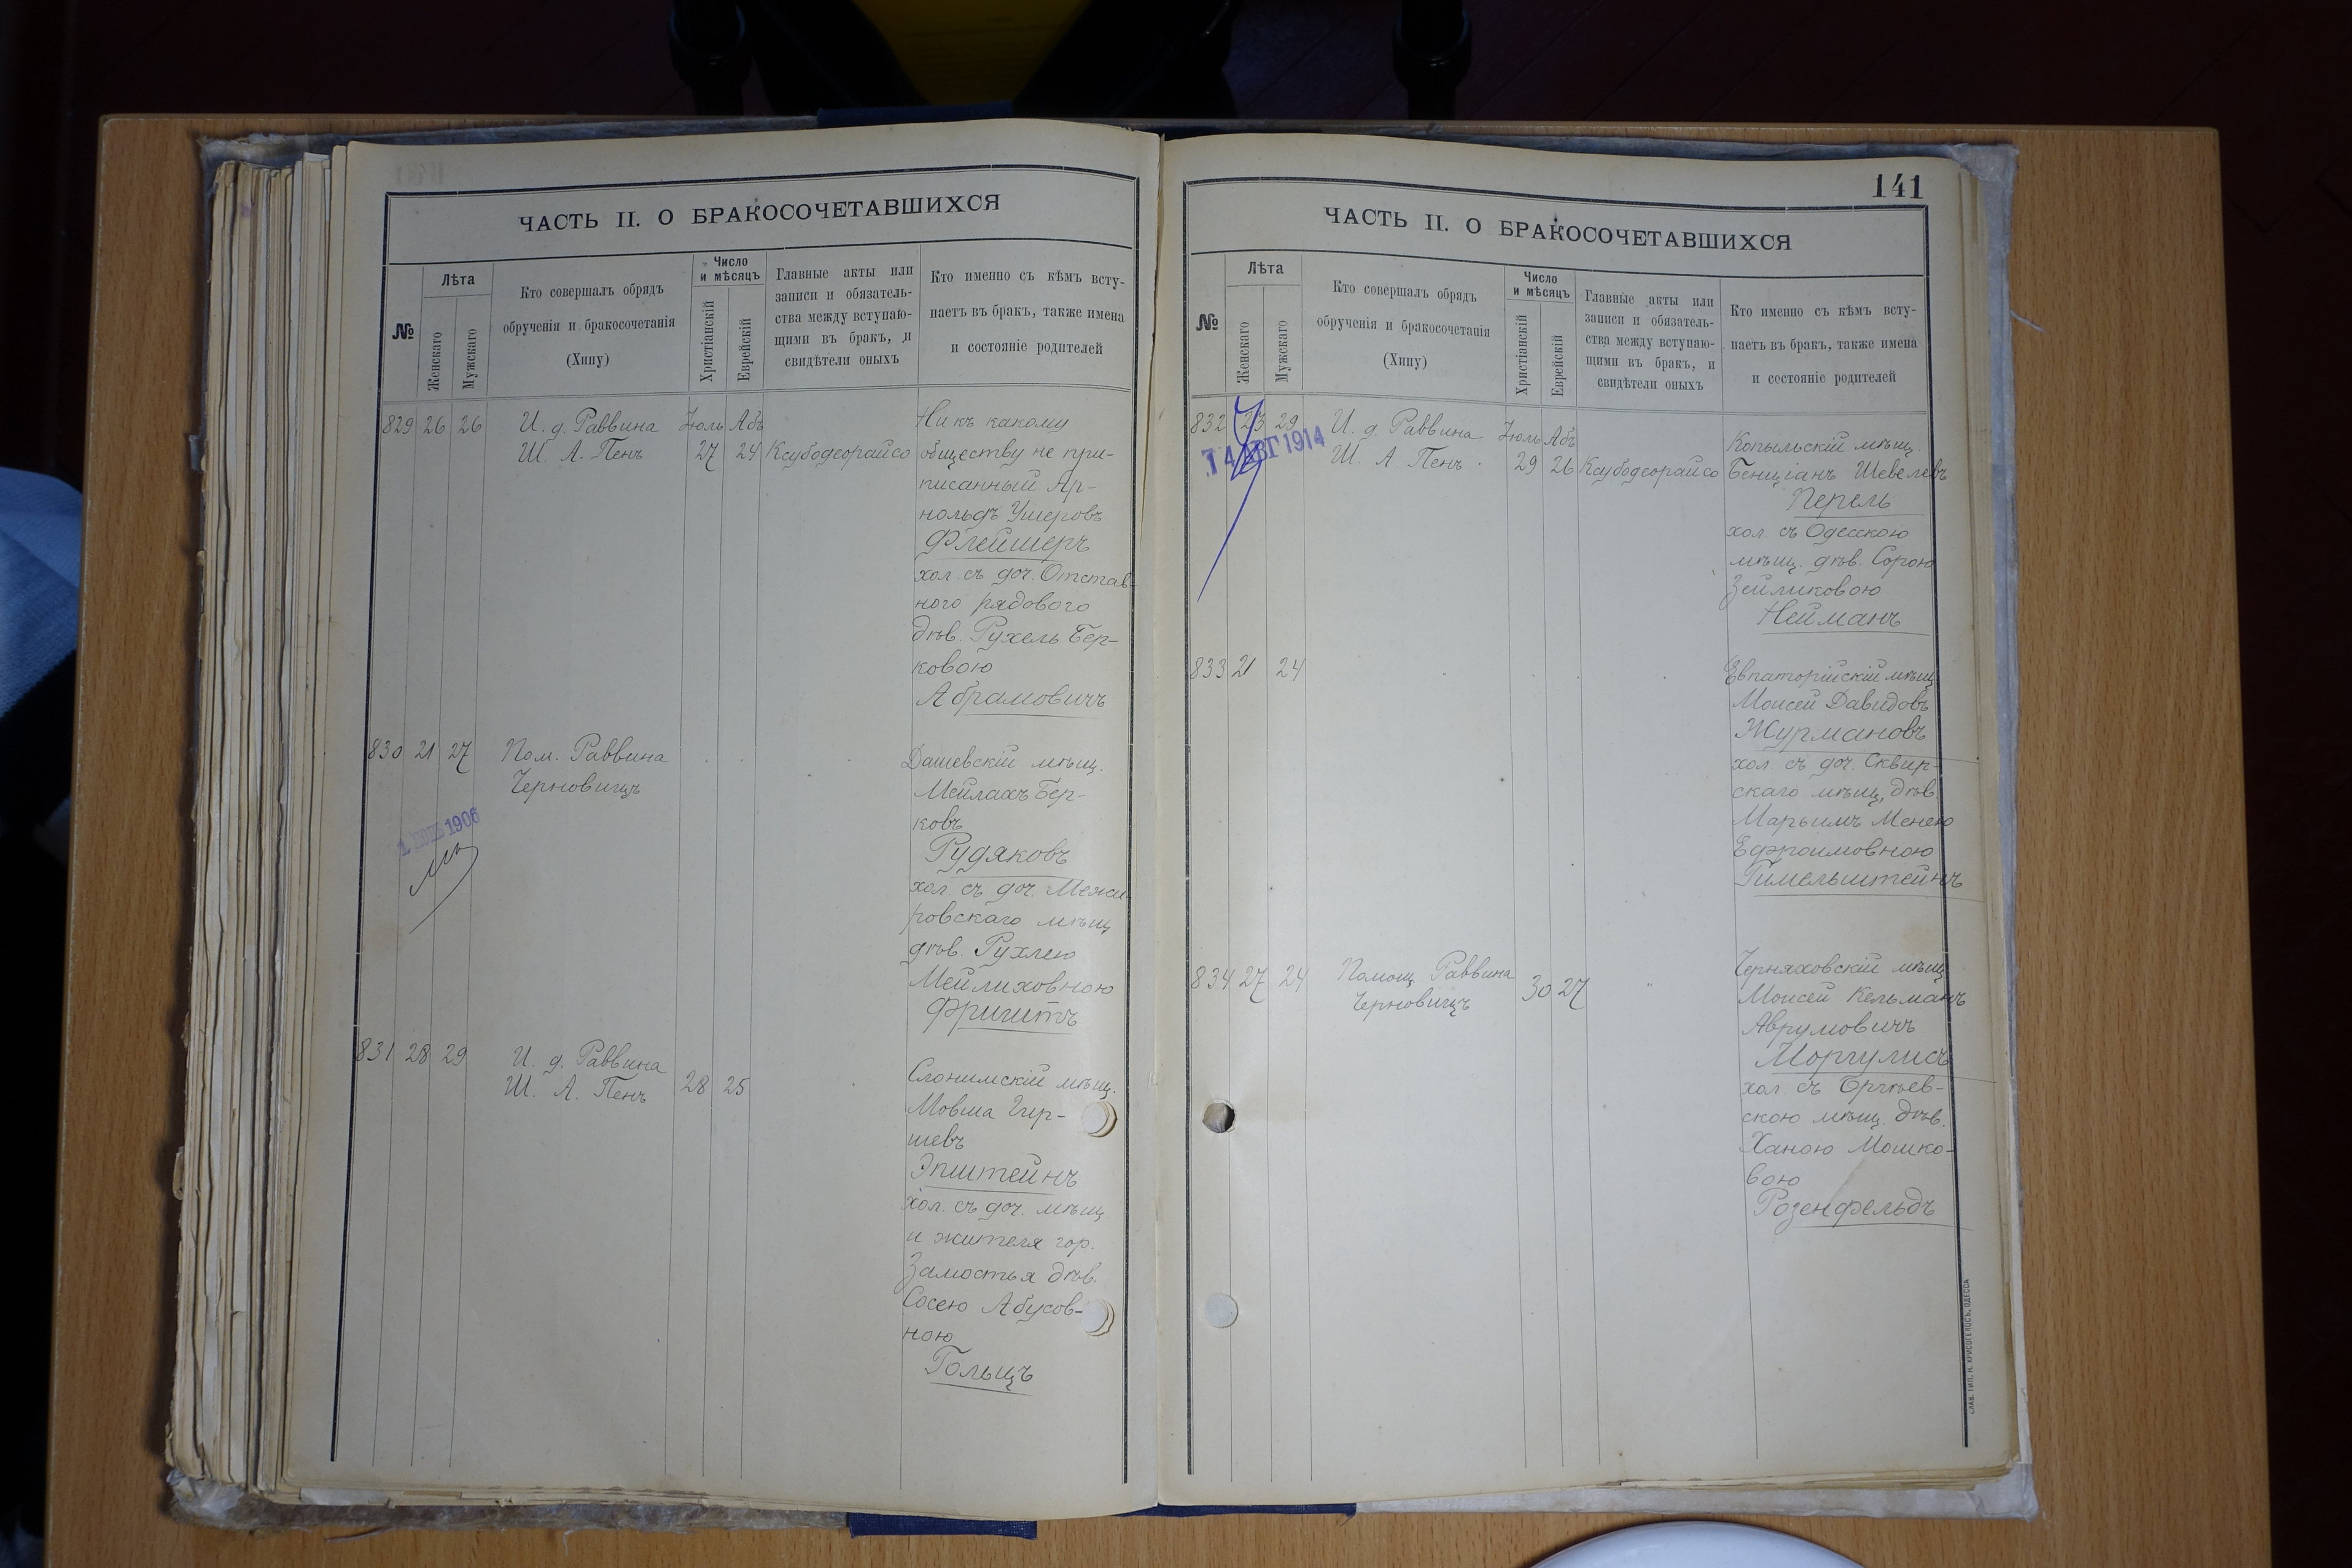 ЧАСТЬ II. О БРАКОСОЧЕТАВШИХСЯ
№
Лѣта
Женскаго
Мужскаго
Кто совершалъ обрядъ
обрученія и бракосочетанія
(Хипу)
Число
и мѣсяцъ
Христіанскій
Еврейскій
Главные акты или
записи и обязатель-
ства между вступаю-
щими въ бракъ, и
свидѣтели оныхъ
Кто именно съ кѣмъ всту-
паетъ въ бракъ, также имена
и состояніе родителей
829 26 26 И. д. Раввина Іюль Абъ Ни къ какому
Ш. А. Пенъ 27 24 Ксубодеорайсо обществу не при-
писанный Ар-
нольдъ Ушеровъ
Флейшеръ
хол. съ доч. Отстав-
ного рядового
дѣв. Рухель Бер-
ковою
Абрамовичъ
830 21 27 Пом. Раввина Дашевскій мѣщ.
Черновицъ Мейлахъ Бер-
ковъ
1906
Рудяковъ
хол. съ доч. Межи-
ровскаго мѣщ
дѣв. Рухлею
Мейлиховною
Фриштъ
831 28 29 И. д. Раввина Слонимскій мѣщ.
Ш. А. Пенъ 28 25 Мовша Гир-
шевъ
Эпштейнъ
хол. съ доч. мѣщ
и жителя гор.
Замостья дѣв.
Сосею Абусов-
ною
Гольцъ
141
ЧАСТЬ II. О БРАКОСОЧЕТАВШИХСЯ
№
Лѣта
Женскаго
Мужскаго
Кто совершалъ обрядъ
обрученія и бракосочетанія
(Хипу)
Число
и мѣсяцъ
Христіанскій
Еврейскій
Главные акты или
записи и обязатель-
ства между вступаю-
щими въ бракъ, и
свидѣтели оныхъ
Кто именно съ кѣмъ всту-
паетъ въ бракъ, также имена
и состояніе родителей
832 23 29 И. д. Раввина Іюль Абъ Копыльскій мѣщ.
14 АВГ 1914
Ш. А Пенъ. 29 26 Ксубодеорайсо Бенціанъ Шевелевъ
Перель
хол. съ Одесскою
мѣщ. дѣв. Сорою
Зейликовою
Нейманъ
833 21 24 Евпаторійскій мѣщ
Моисей Давидовъ
Журмановъ
хол. съ доч. Сквир-
скаго мѣщ, дѣв.
Марьимъ Менею
Ефроимовною
Гимельштейнъ
834 27 24 Помощ Раввина 30 27 Черняховскій мѣщ
Черновицъ Моисей Кельманъ
Аврумовичъ
Моргулисъ
хол съ Оргѣев-
скою мѣщ. дѣв.
Ханою Мошко-
вою
Розенфельдъ
СЛАВ. ТИП. Н. ХРИСОГЕЛОСЪ, ОДЕССА